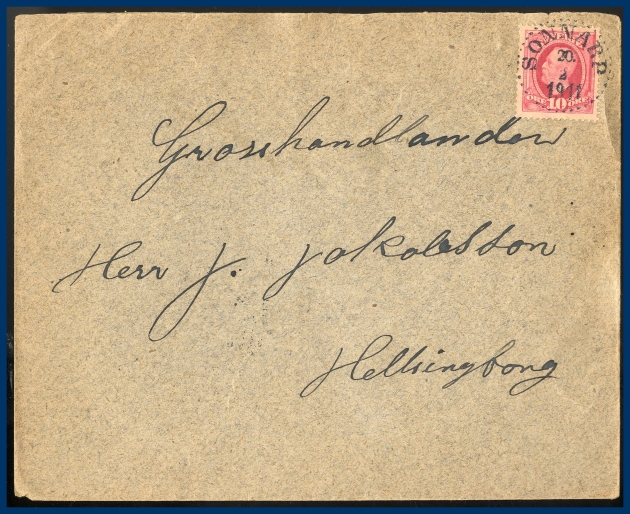 SONNARP
20.
2
1911
ÖRE 10 ÖRE
Grosshandlanden
Herr J. Jakobsson
Hellsingborg